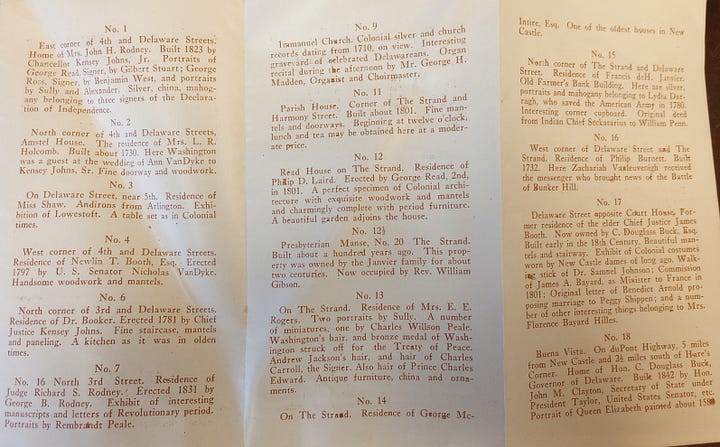 No. 1
East corner of 4th and Delaware Streets.
Home of Mrs. John H. Rodney. Built 1823 by
Chancellor Kensey Johns, Jr. Portraits of
George Read, Signer, by Gilbert Stuart; George
Ross, Signer, by Benjamin West, and portraits
by Sully and Alexander. Silver, china, mahog-
any belonging to three signers of the Declara-
tion of Independence.
No. 2
North corner of 4th and Delaware Streets,
Amstel House. The residence of Mrs. L. R.
Holcomb. Built about 1730. Here Washington
was a guest at the wedding of Ann VanDyke to
Kensey Johns, Sr. Fine doorway and woodwork.
No. 3
On Delaware Street, near 5th. Residence of
Miss Shaw. Andirons from Arlington. Exhi-
bition of Lowestoft. A table set as in Colonial
times.
No. 4
West corner of 4th and Delaware Streets.
Residence of Newlin T. Booth, Esq. Erected
1797 by U. S. Senator Nicholas VanDyke.
Handsome woodwork and mantels.
No. 6
North corner of 3rd and Delaware Streets.
Residence of Dr. Booker. Erected 1781 by Chief
Justice Kensey Johns. Fine staircase, mantels
and paneling. A kitchen as it was in olden
times.
No. 7
No. 16 North 3rd Street. Residence of
Judge Richard S. Rodney. Erected 1831 by
George B. Rodney. Exhibit of interesting
manuscripts and letters of Revolutionary period.
Portraits by Rembrandt Peale.
No. 9
Immanuel Church. Colonial silver and church
records dating from 1710, on view. Interesting
graveyard of celebrated Delawareans. Organ
recital during the afternoon by Mr. George H.
Madden, Organist and Choirmaster.
No. 11
Parish House. Corner of The Strand and
Harmony Street. Built about 1801. Fine man-
tels and doorways. Beginning at twelve o'clock,
lunch and tea may be obtained here at a moder-
ate price.
No. 12
Read House on The Strand. Residence of
Philip D. Laird. Erected by George Read, 2nd,
in 1801. A perfect specimen of Colonial archi-
tecture with exquisite woodwork and mantels
and charmingly complete with period furniture.
A beautiful garden adjoins the house.
No. 12½
Presbyterian Manse, No. 20 The Strand.
Built about a hundred years ago. This prop-
erty was owned by the Janvier family for about
two centuries. Now occupied by Rev. William
Gibson.
No. 13
On The Strand. Residence of Mrs. E. E.
Rogers. Two portraits by Sully. A number
of miniatures, one by Charles Willson Peale.
Washington's hair, and bronze medal of Wash-
ington struck off for the Treaty of Peace.
Andrew Jackson's hair, and hair of Charles
Carroll, the Signer. Also hair of Prince Charles
Edward. Antique furniture, china and orna-
ments.
No. 14
On The Strand. Residence of George Mc-
Intire, Esq. One of the oldest houses in New
Castle.
No. 15
North corner of The Strand and Delaware
Street. Residence of Francis deH. Janvier.
Old Farmer's Bank Building. Here are silver,
portraits and mahogany belonging to Lydia Dar-
ragh, who saved the American Army in 1780.
Interesting corner cupboard. Original deed
from Indian Chief Seckatarius to William Penn.
No. 16
West corner of Delaware Street and The
Strand. Residence of Philip Burnett. Built
1732. Here Zachariah Vanleuvenigh received
the messenger who brought news of the Battle
of Bunker Hill.
No. 17
Delaware Street opposite Court House. For-
mer residence of the elder Chief Justice James
Booth. Now owned by C. Douglass Buck, Esq.
Built early in the 18th Century. Beautiful man-
tels and stairway. Exhibit of Colonial costumes
worn by New Castle dames of long ago. Walk-
ing stick of Dr. Samuel Johnson; Commission
of James A. Bayard, as Minister to France in
1801; Original letter of Benedict Arnold pro-
posing marriage to Peggy Shippen; and a num-
ber of other interesting things belonging to Mrs.
Florence Bayard Hilles.
No. 18
Buena Vista. On duPont Highway, 5 miles
from New Castle and 2½ miles south of Hare's
Corner. Home of Hon. C. Douglass Buck,
Governor of Delaware. Built 1842 by Hon.
John M. Clayton, Secretary of State under
President Taylor, United States Senator, etc.
Portrait of Queen Elizabeth painted about